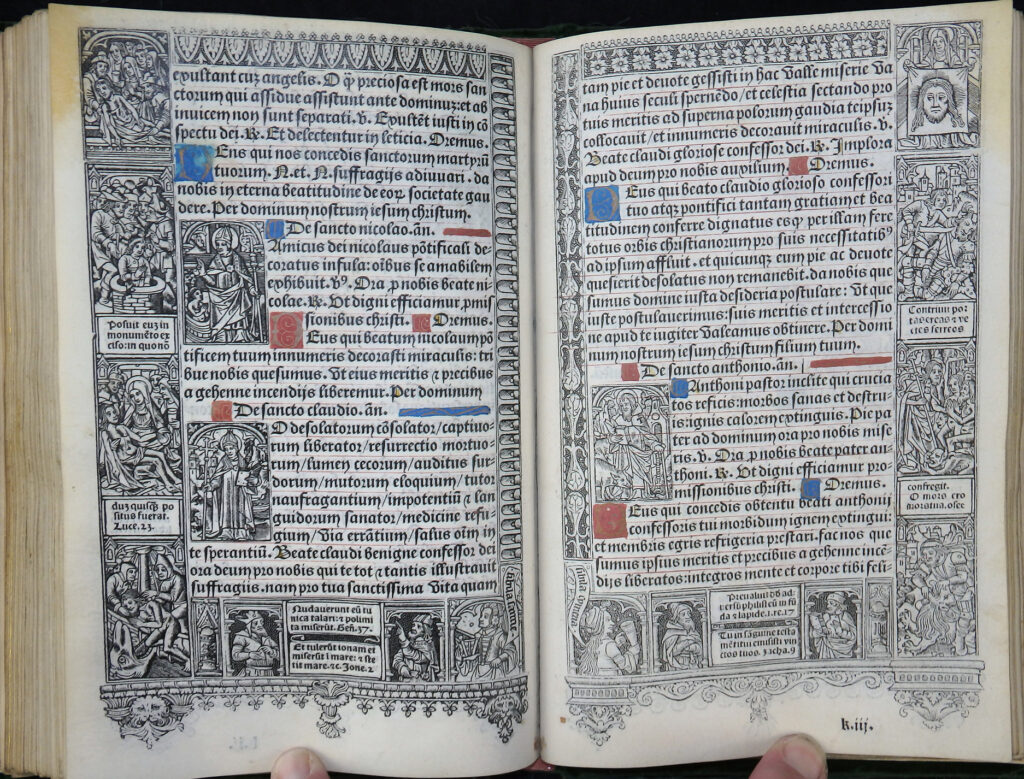 exultant cuz angelis. O qͥ preciosa est mors san
ctorum qui assidue assistunt ante dominuz: et ab
nuicem non sunt separati. v. Exultēt iusti in cō
spectu dei. R. Et delectentur in leticia. Oremus.
DEus qui nos concedis sanctorum martyrū
tuorum. N. et. N. suffragijs adiuuari. da
nobis in eterna beatitudine de eoꝝ societate gau
dere. Per dominum nostrum iesum christum.
De sancto nicolao. añ.
Amicus dei nicolaus pōtificali de-
coratus infula: oībus se amabilem
exhibuit. vᵒ. Ora ꝓ nobis beate ni
colae. R. Vt digni efficiamur ꝓmis
sionibus christi. Oremus.
DEus qui beatum nicolaum pō
tificem tuum innumeris decorasti miraculis: tri
bue nobis quesumus. Vt eius meritis & precibus
a gehenne incendijs liberemur. Per dominum
De sancto claudio. añ.
O desolatorum cōsolator/captiuo
rum liberator/resurrectio mortuo-
rum/lumen cecorum/auditus sur-
dorum/mutorum eloquium/tutor
naufragantium/impotentiū & lan
guidorum sanator/medicine refu-
gium/via errātium/salus oīm in
te sperantiū. Beate claudi benigne confessor dei
ora deum pro nobis qui te tot & tantis illustrauit
suffragijs. nam pro tua sanctissima vita quam
Posuit euz in
monumēto ex
ciso: in quo nō
duz quisqͣ̄ po
situs fuerat.
Luce. 23.
Nudauerunt eū tu
nica talari: & polimi
ta miserūt. Gen. 37.
Et tulerūt ionam et
miserūt ī mare: & ste
tit mare. &c. Jone. 2
tam pie et deuote gessisti in hac valle miserie va
na huius seculi spernēdo/et celestia sectando pro
tuis meritis ad superna polorum gaudia teipsuz
collocauit/et innumeris decorauit miraculis. v.
Beate claudi gloriose confessor dei. R. Implora
apud deum pro nobis auxilium. Oremus.
DEus qui beato claudio glorioso confessori
tuo atqꝫ pontifici tantam gratiam et bea
titudinem conferre dignatus es qͥ per islam fere
totus orbis christianorum pro suis necessitatibᵒ
ad ipsum affluit. et quicunqꝫ eum pie ac deuote
gesserit desolatus non remanebit. da nobis que
sumus domine iusta desideria postulare: vt que
iuste postulauerimus: suis meritis et intercessio
ne apud te iugiter valeamus obtinere. Per domi
num nostrum iesum christum filium tuum.
De sancto anthonio. añ.
Anthoni pastor inclite qui crucia
tos reficis: morbos sanas et destru-
is: ignis calorem extinguis. Pie pa
ter ad dominum ora pro nobis mise
ris. v. Ora ꝓ nobis beate pater an
thoni. R. Vt digni efficiamur pro-
missionibus christi. Oremus.
DEus qui concedis obtentu beati anthonij
confessoris tui morbidum ignem extingui
et membris egris refrigeria prestari. fac nos que
sumus ipsius meritis et precibus a gehenne incē-
dijs liberatos: integros mente et corpore tibi feli-
Contriuit por
tas ereas & ve
ctes ferreos
confregit.
O mors ero
mors tua. osee
Preualuit dd ad-
uersuꝫ philisteū in fū
da & lapide. i. re. 17
Tu in sāguine testa
mēti tui emisisti vin
ctos tuos. zacha. 9
k.iij.